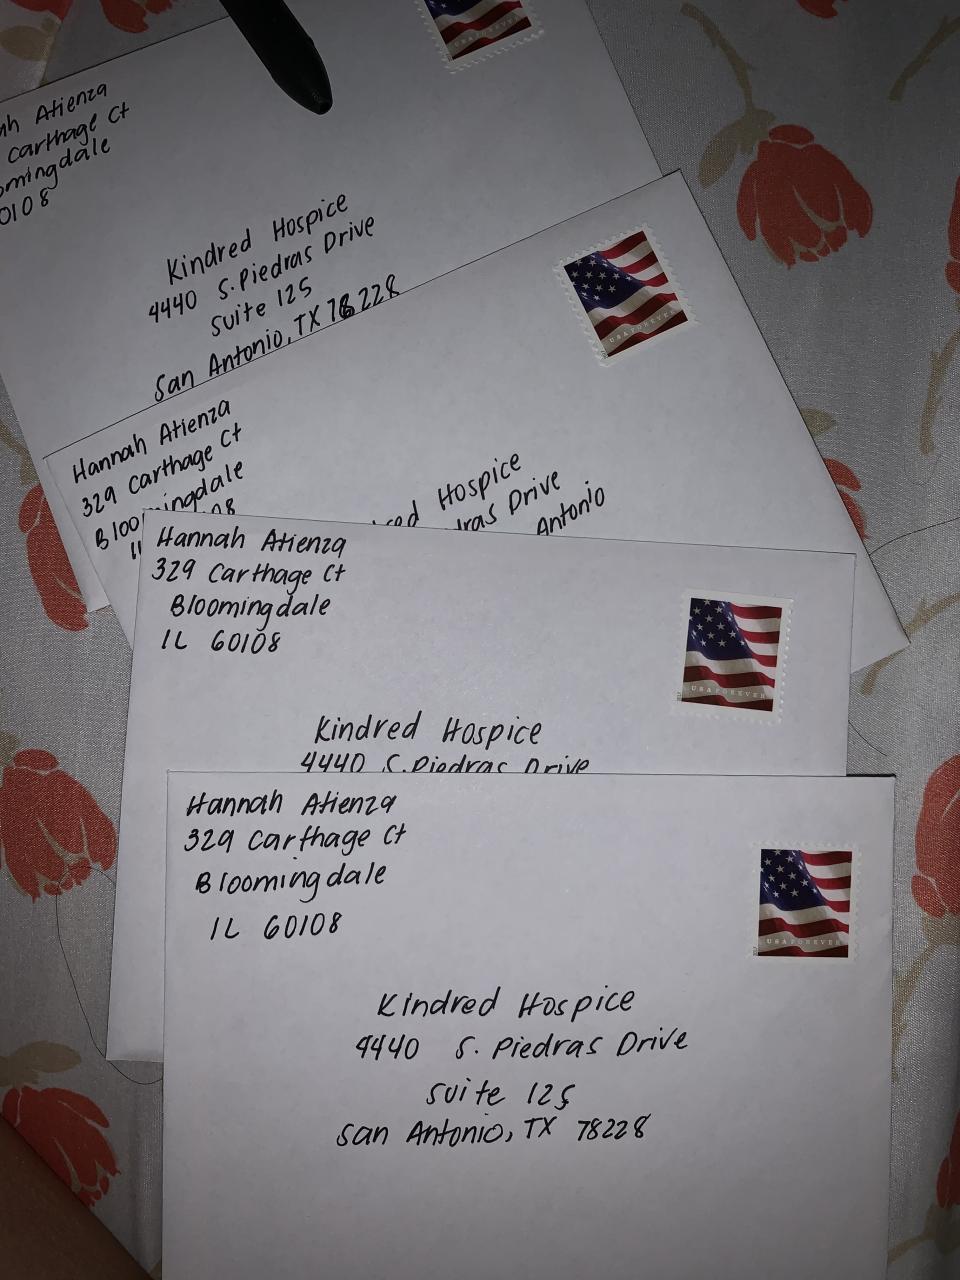 Atienza
Carthage Ct
Kindred Hospice
4440 S. Piedras Drive
Suite 125
San Antonio, TX 78228
USA FOREVER
Hannah Atienza
329 Carthage Ct
Bloomingdale
Hospice
Drive
Antonio
USA FOREVER
Hannah Atienza
329 Carthage Ct
Bloomingdale
IL 60108
USA FOREVER
Kindred Hospice
4440 S. Piedras Drive
Hannah Atienza
329 Carthage Ct
Bloomingdale
IL 60108
USA FOREVER
Kindred Hospice
4440 S. Piedras Drive
Suite 125
San Antonio, TX 78228